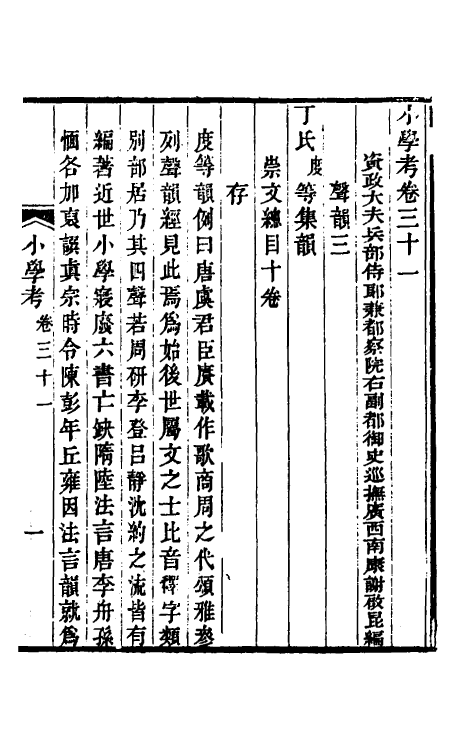 小學考卷三十一
資政大夫兵部侍郎兼都察院右副都御史巡撫廣西南康謝啟昆編
聲韻三
丁氏度等集韻
崇文總目十卷
存
度等韻例曰唐虞君臣賡載作歌商周之代頌雅參
列聲韻經見此焉爲始後世屬文之士比音釋字類
別部居乃其四聲若周研李登呂靜沈約之流皆有
編著近世小學寖廢六書亡缺隋陸法言唐李舟孫
愐各加裒譔眞宗時令陳彭年丘雍因法言韻就爲
小學考
卷三十一
一